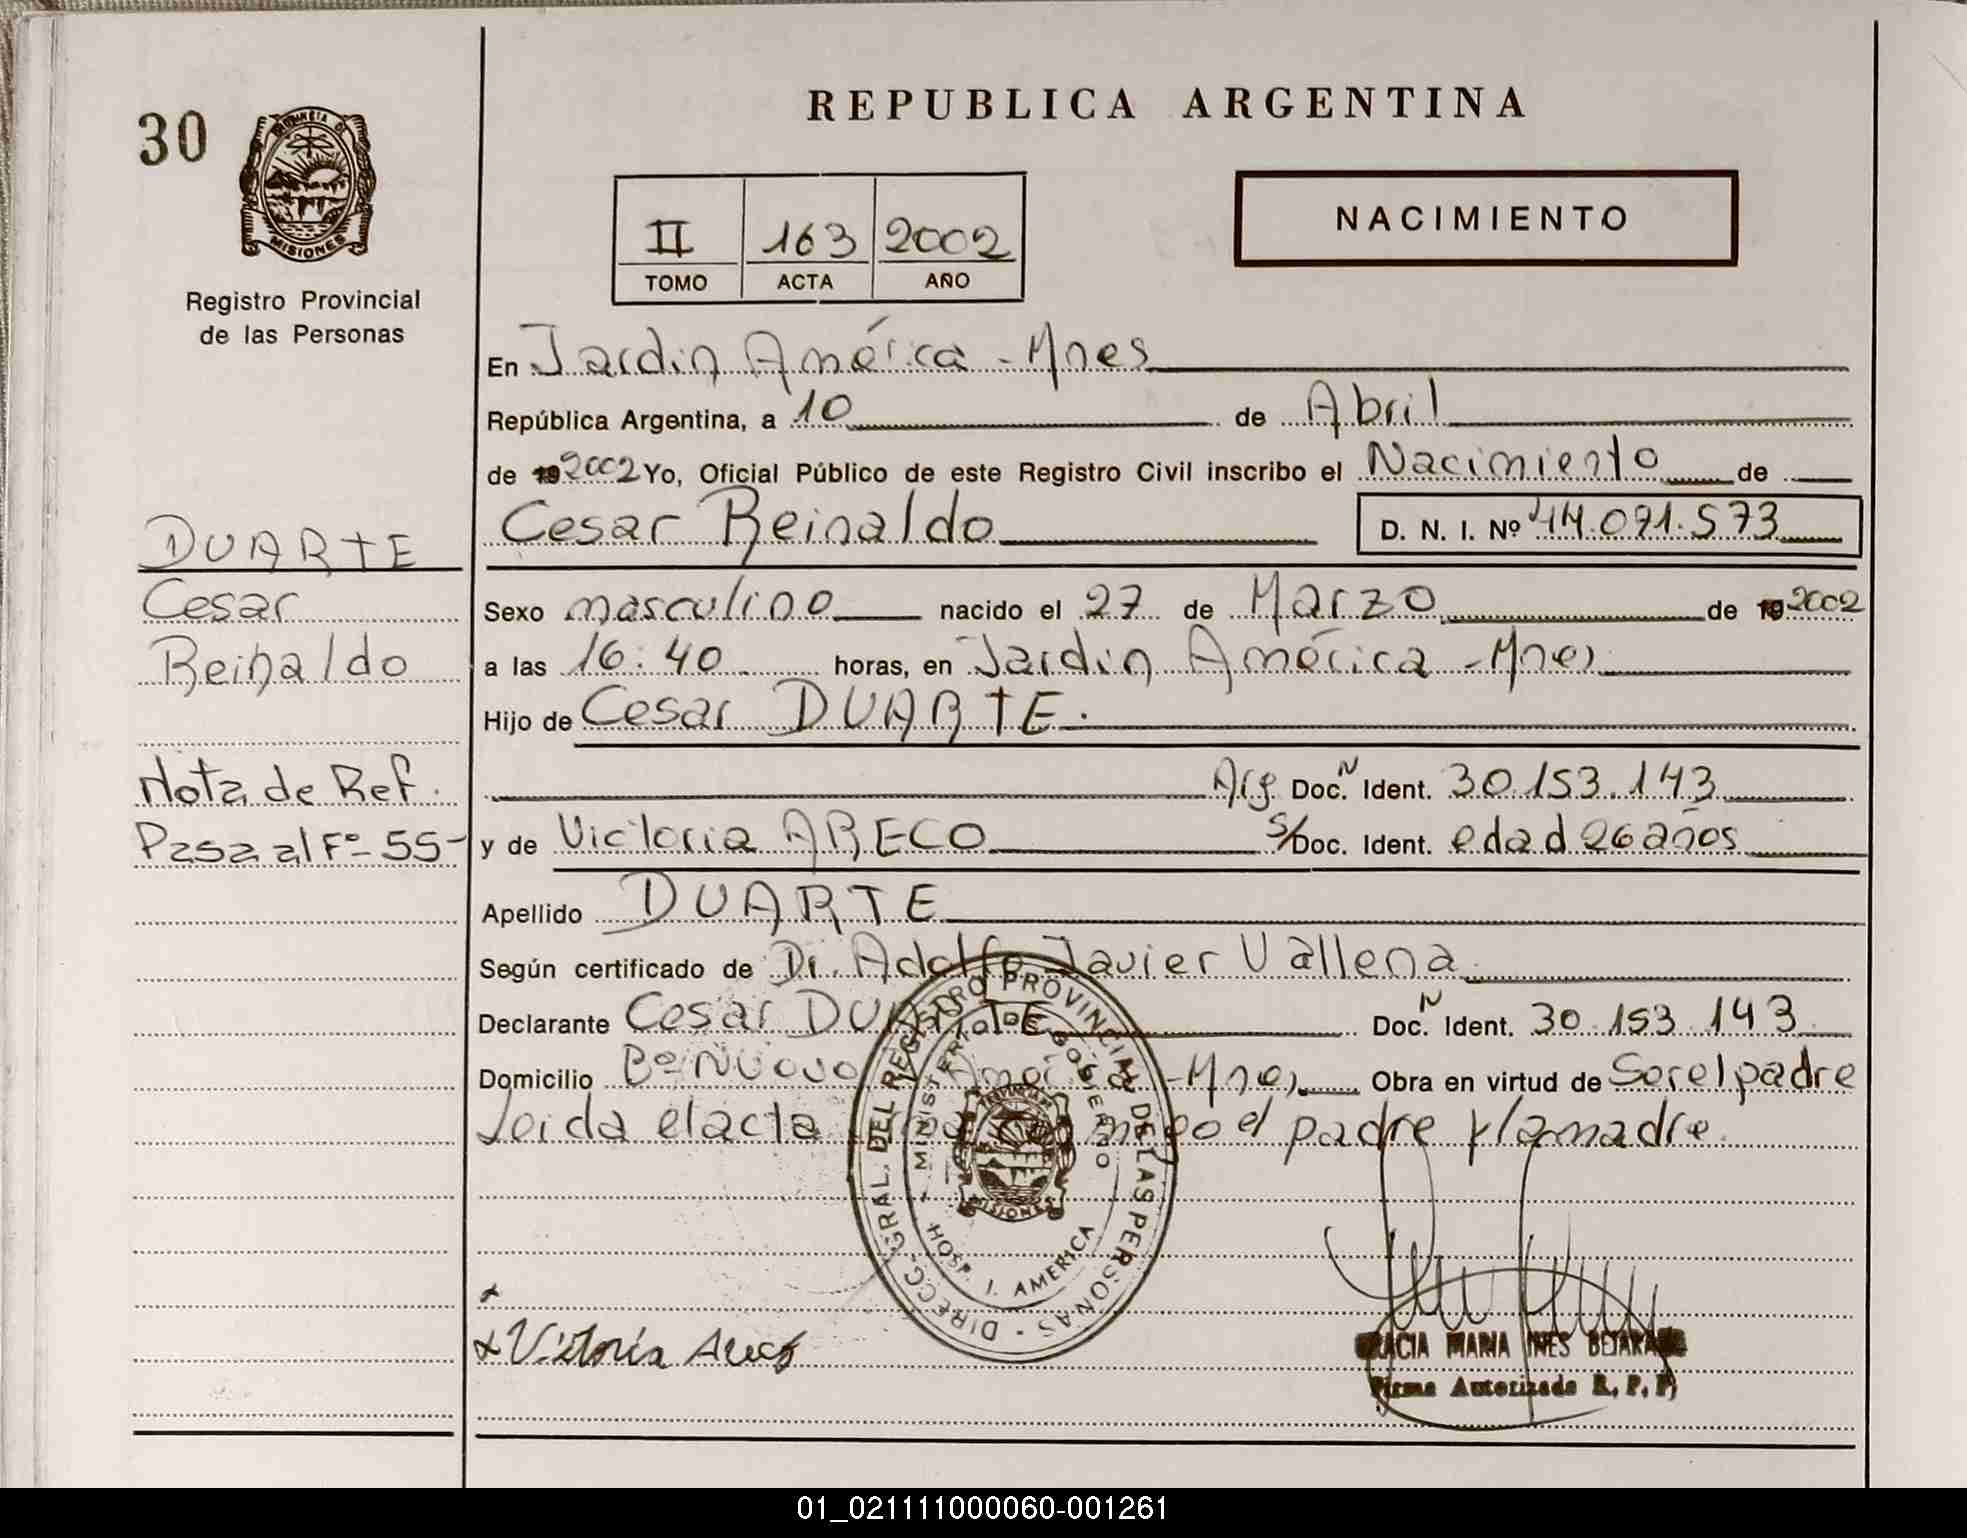 30
PROVINCIA DE
MISIONES
Registro Provincial
de las Personas
REPUBLICA ARGENTINA
II 163 2002
TOMO ACTA AÑO
NACIMIENTO
En Jardin América - Mnes
República Argentina, a 10 de Abril
de 19 2002 Yo, Oficial Público de este Registro Civil inscribo el Nacimiento de
Cesar Reinaldo D. N. I. Nº 44.091.573
Sexo masculino nacido el 27 de Marzo de 19 2002
a las 16:40 horas, en Jardin América - Mnes
Hijo de Cesar DUARTE.
Arg Doc. N Ident. 30.153.143
y de Victoria ARECO S/Doc. Ident. edad 26 años
Apellido DUARTE
Según certificado de Dr. Adolfo Javier Vallena
Declarante Cesar DUARTE Doc. N Ident. 30.153.143
Domicilio Bº Nuevo América - Mnes Obra en virtud de Ser el padre
Leida el acta el padre y la madre.
DUARTE
Cesar
Reinaldo
Nota de Ref.
Pasa al Fº 55-
DIRECC. GRAL. DEL REGISTRO PROVINCIAL DE LAS PERSONAS
MINISTERIO DE GOBIERNO
MISIONES
HOSP. J. AMERICA
x
x Victoria Areco
GRACIA MARIA INES BEJARANO
Firma Autorizada R. P. P.
01_021111000060-001261